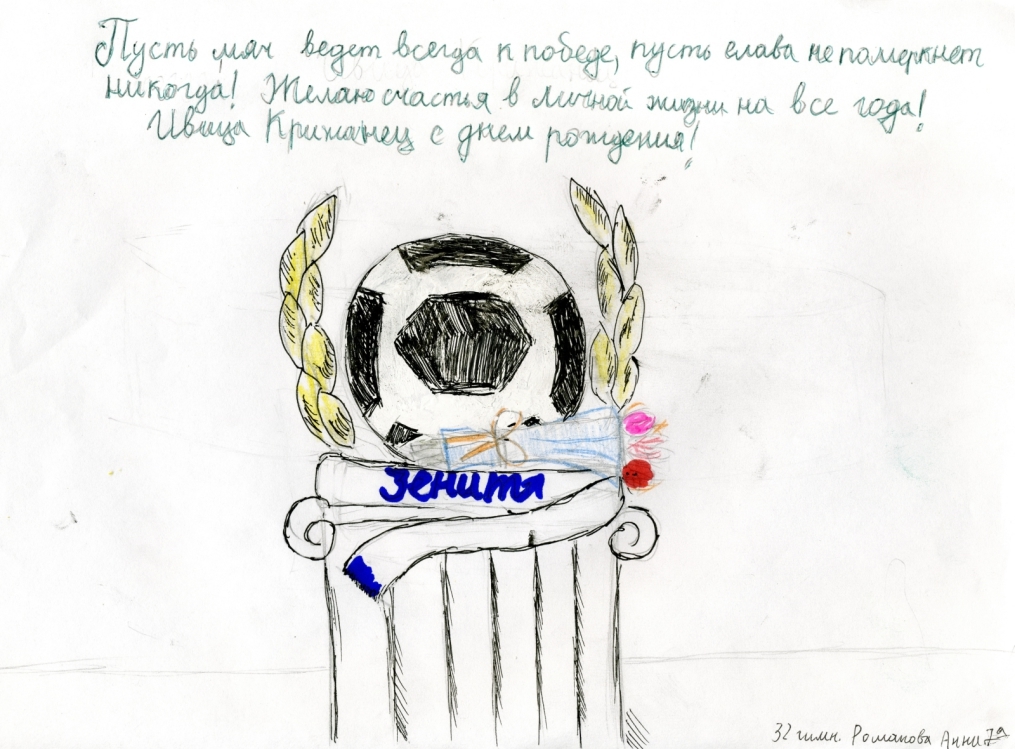 Пусть мяч ведет всегда к победе, пусть слава не померкнет
никогда! Желаю счастья в личной жизни на все года!
Ивица Крижанец с днем рождения!
Зенита
32 гимн. Романова Анна 7а